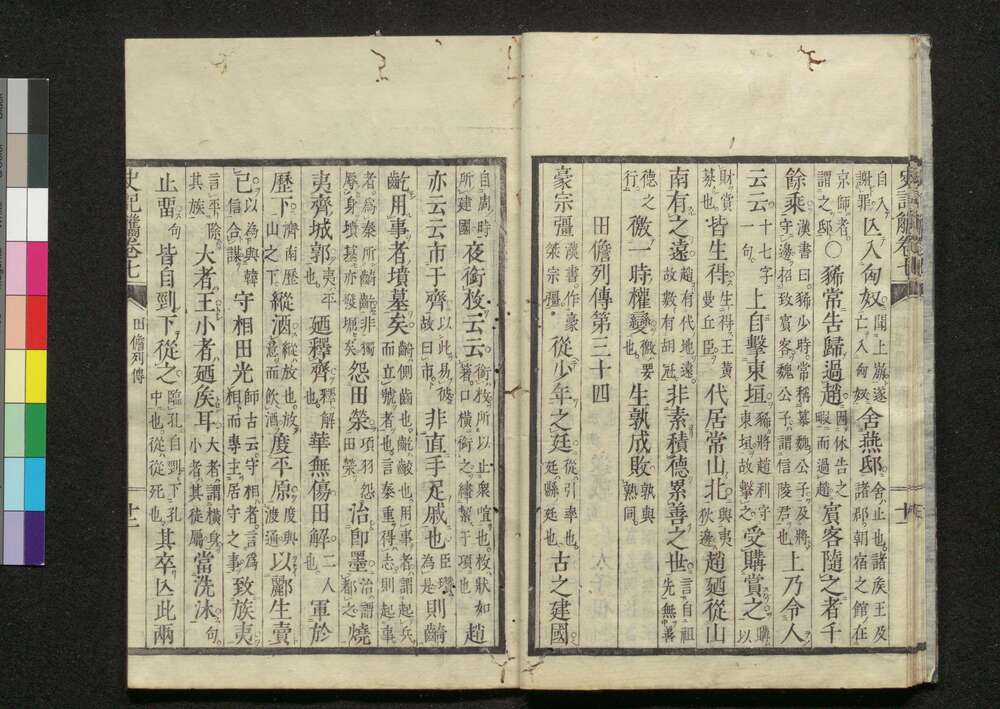 自入謝罪亾入匈奴聞上崩遂亾入匈奴舍燕邸舍止也諸矦王及諸郡朝宿之館在
京師者謂之邸○豨常告歸過趙因休告之暇而過趙賓客隨之者千
餘乘漢書曰豨少時常稱慕魏公子及將守邊招致賓客魏公子謂信陵君也上乃令人
云云十七字一句上自擊東垣豨將趙利守東垣故擊之受購賞之購以
財賞募也皆生得生得王黃曼丘臣代居常山北與夷狄邊趙廼從山
南有之遠趙有代地遠故數有胡冦非素積德累善之世言自祖先無善
德之行徼一時權變徼要也生孰成敗孰與熟同
田儋列傳第三十四
豪宗彊漢書作豪桀宗彊從少年之廷從引率也廷縣廷古之建國
自周時所建國夜銜枚云云銜枚所以止衆喧也枚狀如箸口橫銜之繣絜于項也趙
亦云云市于齊以此易彼故曰市非直手足戚也臣瓚為是則齮
齕用事者墳墓矣齮側齒也齕齩也用事者謂起兵而立號者也言秦重得志則起事
者為秦所齮齕非獨辱身墳墓亦發掘矣怨田榮項羽怨田榮治即墨治謂都之燒
夷齊城郭夷平也廼釋齊釋解也華無傷田解二人也軍於
歷下濟南歷山之下縱酒縱放也放意而飲酒度平原度與渡通以酈生賣
己以為與韓信合謀守相田光師古云守相者言爲相而專主居守之事致族夷
言平除其族大者王小者廼矦耳大者謂橫身小者其徒屬當洗沐句
止畱句皆自剄下從之臨孔自剄下孔中也從從死也其卒亾此兩
田儋列傳
十二